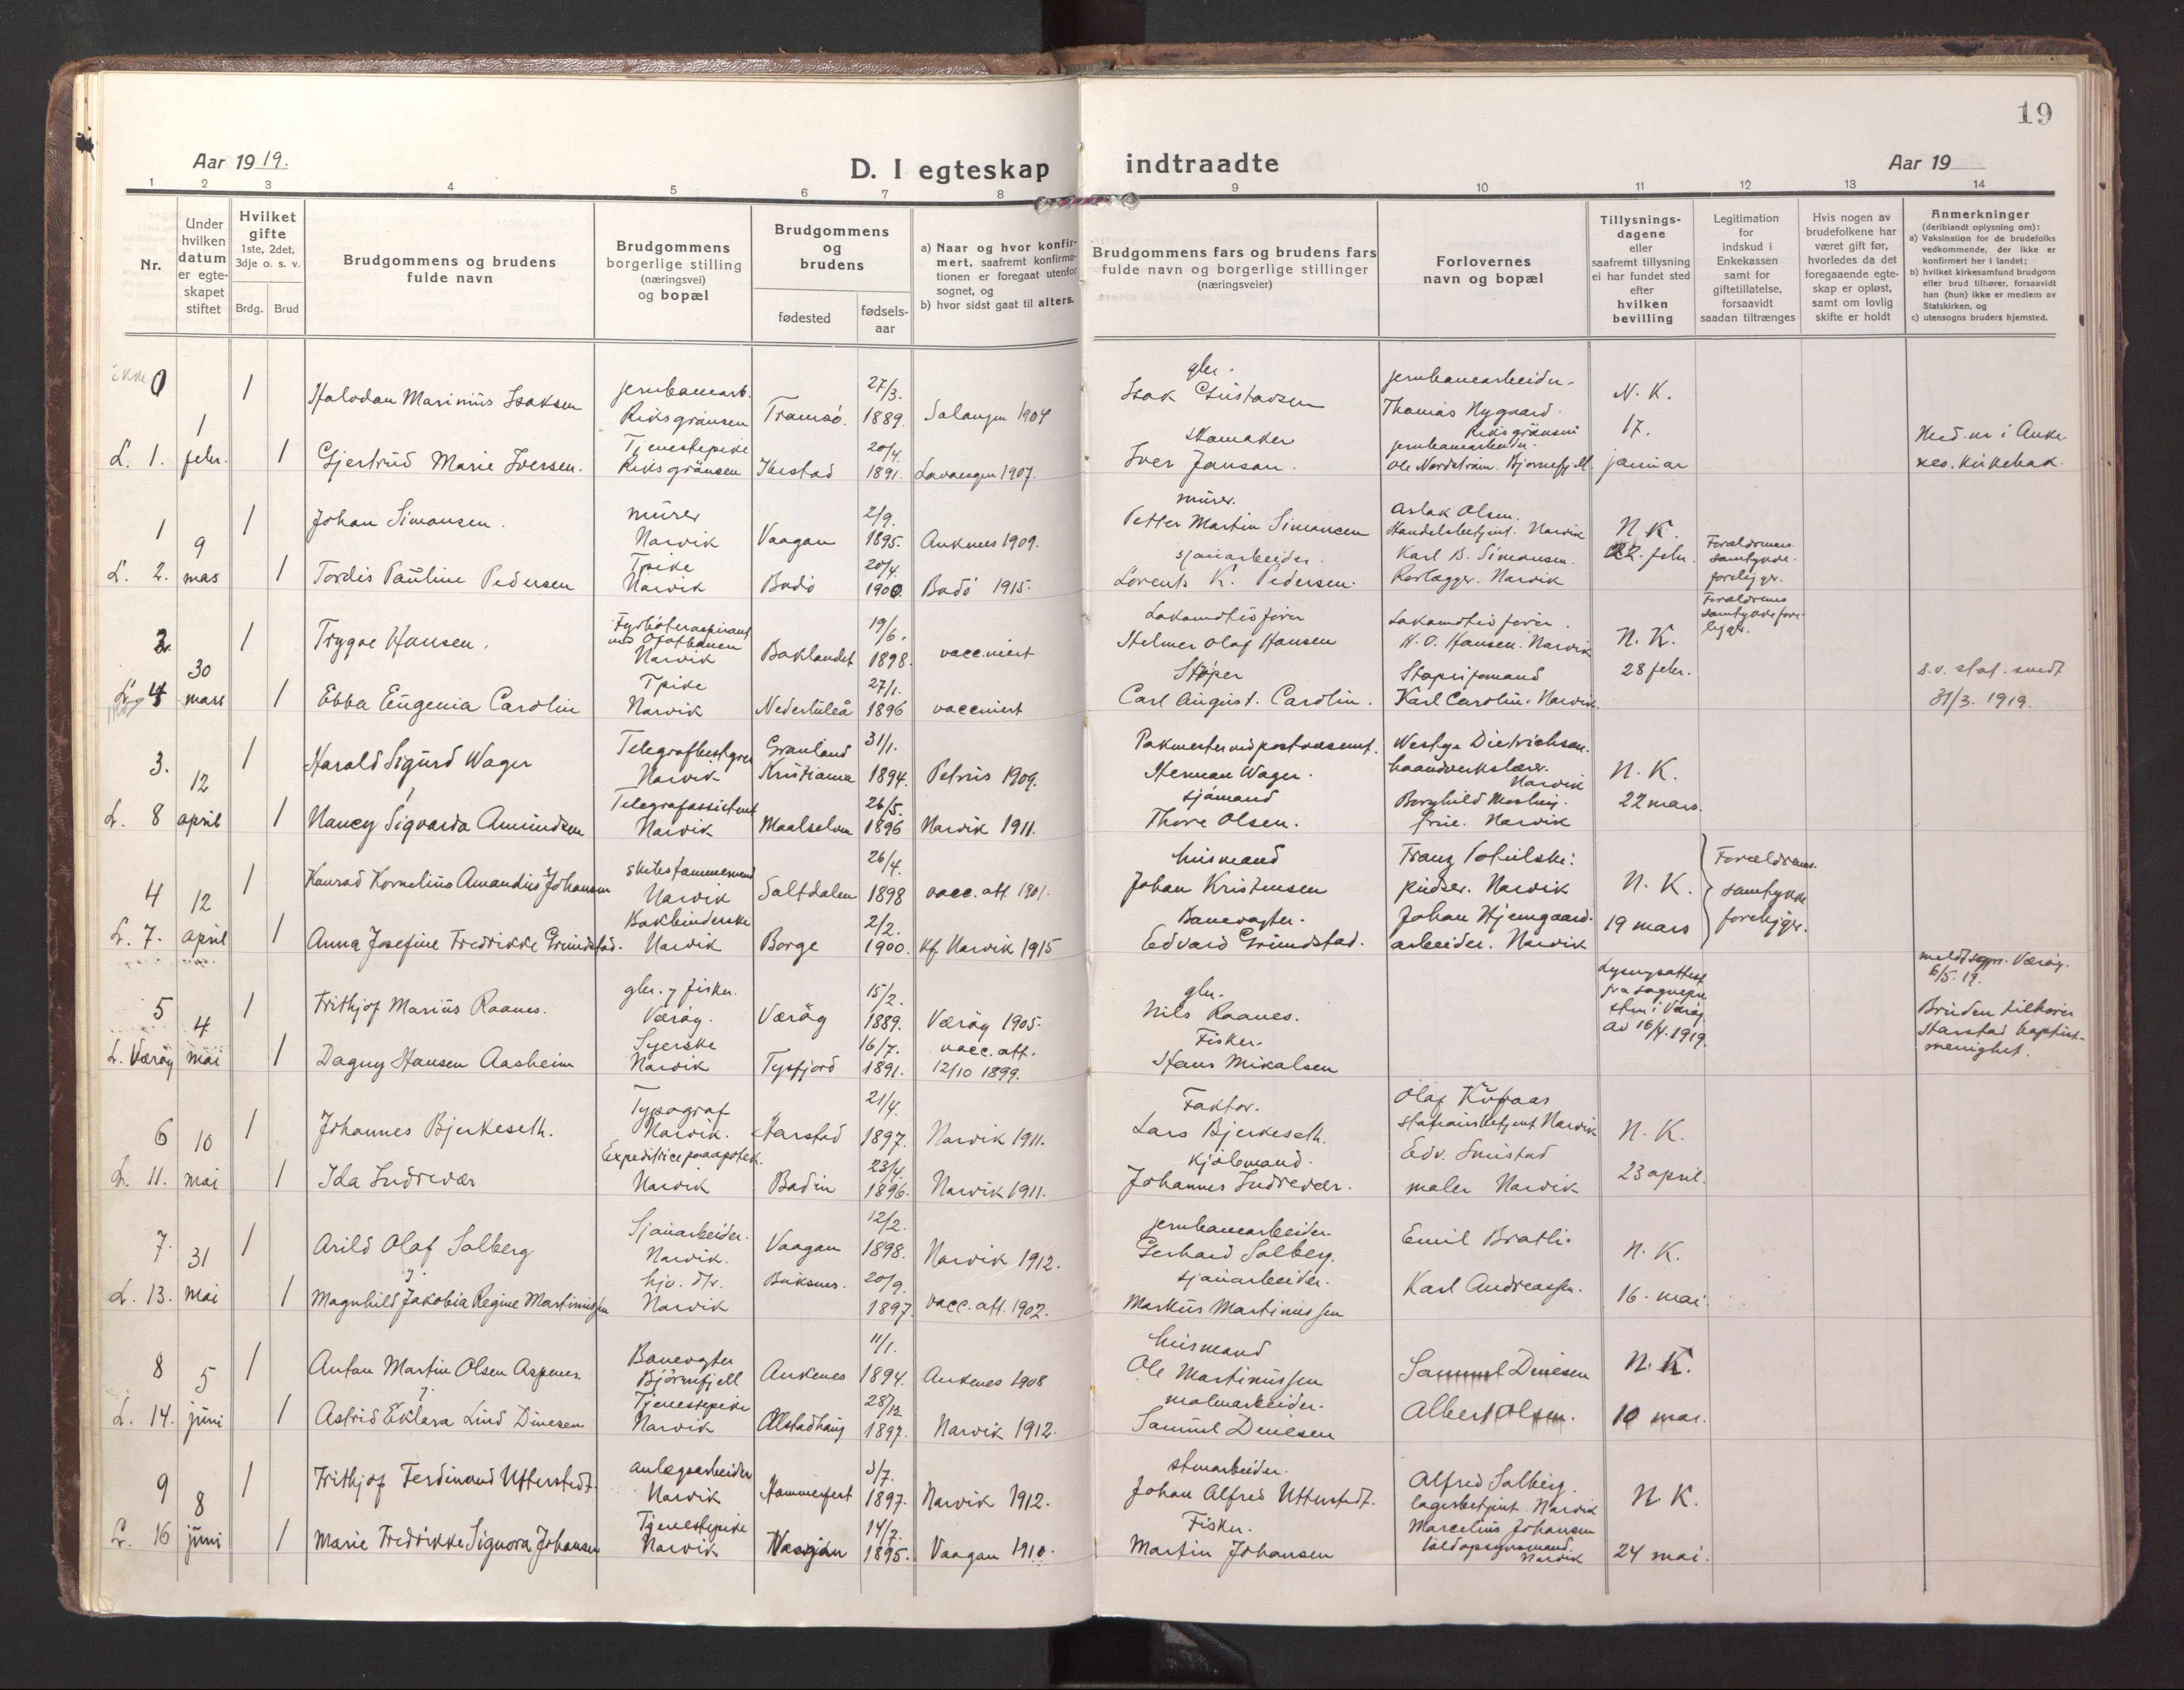 19
Aar 1919.
D. I egteskap indtraadte
Aar 19
1 2 3 4 5 6 7 8 9 10 11 12 13 14
Nr.
Under hvilken datum er egte-skapet stiftet
Hvilket gifte
1ste, 2det, 3dje o. s. v.
Brdg. Brud
Brudgommens og brudens fulde navn
Brudgommens borgerlige stilling (næringsvei) og bopæl
Brudgommens og brudens
fødested
fødsels-aar
a) Naar og hvor konfir-mert, saafremt konfirma-tionen er foregaat utenfor sognet, og
b) hvor sidst gaat til alters.
Brudgommens fars og brudens fars fulde navn og borgerlige stillinger (næringsveier)
Forlovernes navn og bopæl
Tillysnings-dagene eller saafremt tillysning ei har fundet sted efter hvilken bevilling
Legitimation for indskud i Enkekassen samt for giftetillatelse, forsaavidt saadan tiltrænges
Hvis nogen av brudefolkene har været gift før, hvorledes da det foregaaende egte-skap er opløst, samt om lovlig skifte er holdt
Anmerkninger (deriblandt oplysning om):
a) Vaksination for de brudefolks vedkommende, der ikke er konfirmert her i landet;
b) hvilket kirkesamfund brudgom eller brud tilhører, forsaavidt han (hun) ikke er medlem av Statskirken, og
c) utensogns bruders hjemsted.
ikke 0
1 febr.
1 Halvdan Marinius Isaksen
jernbanearb. Riksgränsen
Tromsø. 27/3. 1889. Salangen 1904
gbr. Isak Gustavsen
jernbanearbeider. Thomas Nygaard. Riksgränsen
N. K. 17. januar
L. 1. 1 Gjertrud Marie Iversen.
Tjenestepike Riksgränsen
Ibestad 20/4. 1891. Lavangen 1907.
skomaker Iver Jonsson.
jernbanearbeider. Ole Nordstrøm. Bjørnefjell.
Med. nr i Anke-nes. kirkebok.
1 9 mas
1 Johan Simonsen.
murer Narvik
Vaagan 2/9. 1895. Ankenes 1909.
murer. Petter Martin Simonsen
Aslak Olsen. Handelsbetjent. Narvik
N. K. 22. febr.
L. 2. 1 Tordis Pauline Pedersen
Tpike Narvik
Bodö 20/4. 1900. Bodö 1915.
sjauarbeider. Lorents K. Pedersen.
Karl B. Simonsen. Rørlægger. Narvik
Forældrenes samtykke foreligger.
2. 30 mars
1 Trygve Hansen.
Fyrbøteraspirant ved Ofotbanen Narvik
Baklandet 19/6. 1898. vaccinert
Lokomotivfører Helmer Olaf Hansen
Lokomotivfører. H. O. Hansen. Narvik
N. K. 28 febr.
Forældrenes samtykke fore-ligger.
L. 4 1 Ebba Eugenia Carolin
Tpike Narvik
Nederluleå 27/1. 1896 vaccinert
Støper Carl August. Carolin.
Støperiformand Karl Carolin. Narvik.
s.v. stat. sendt 31/3. 1919.
3. 12 april
1 Harald Sigurd Wager
Telegrafbestyrer Narvik
Grønland Kristiania 31/1. 1894. Petrus 1909.
Pakmester ved postvæsenet. Herman Wager.
Westye Diedrichsen. haandverkslærer. Narvik
N. K. 22 mars.
L. 8 1 Nancy Sigvarda Amundsen
Telegrafassistent Narvik
Maalselven 26/5. 1896 Narvik 1911.
sjømand Thore Olsen.
Borghild Mosling. frue. Narvik
4 12 april
1 Konrad Kornelius Amandius Johansen
skibstømmermand Narvik
Saltdalen 26/4. 1898 vacc. att. 1901.
husmand Johan Kristensen
Franz Pofielski. pudser. Narvik
N. K. 19 mars
Forældrenes samtykke foreligger.
L. 7. 1 Anna Josefine Fredrikke Grimdstad.
Bokbinderske Narvik
Borge 2/2. 1900. kf. Narvik 1915
Banevogter. Edvard Grundstad.
Johan Hjemgaard. arbeider. Narvik
5 4 mai
1 Frithjof Marius Raanes.
gbr. & fisker. Værøy.
Værøy 15/2. 1889. Værøy 1905.
gbr. Nils Raanes.
Lysningsattest fra sognepre-sten i Værøy av 16/4. 1919.
meldt sogpr. Værøy. 6/5. 19.
L. Værøy 1 Dagny Hansen Aasheim
Syerske Narvik
Tysfjord 16/7. 1891. vacc. att. 12/10 1899.
Fisker. Hans Mikalsen
Bruden tilhører Harstad baptist-menighet.
6 10 mai
1 Johannes Bjerkeseth.
Typograf Narvik.
Harstad 21/4. 1897. Narvik 1911.
Faktor. Lars Bjerkeseth.
Olaf Kufaas stationsbetjent Narvik
N. K. 23 april.
L. 11. 1 Ida Indrevær
Expeditrice paa apotek. Narvik
Bodin 23/4. 1896. Narvik 1911.
kjølemand. Johannes Indrevær.
Edv. Smistad maler Narvik
7. 31 mai
1 Arild Olaf Solberg
Sjauarbeider. Narvik.
Vaagan 12/2. 1898. Narvik 1912.
jernbanearbeider Gerhard Solberg.
Emil Bratli.
N. K. 16. mai.
L. 13. 1 Magnhild Jakobia Regine Martinussen
hjv. dtr. Narvik
Buksnes. 20/9. 1897. vacc. att. 1902.
sjauarbeider. Markus Martinussen
Karl Andreassen.
8 5 juni
1 Anton Martin Olsen Aspenes.
Banevogter Björnefjell
Ankenes 11/1. 1894. Ankenes 1908
husmand Ole Martinussen
Samuel Dinesen
N. K. 10 mai.
L. 14. 1 Astrid Eklara Lind Dinesen
Tjenestepike Narvik
Alstadhaug 28/12 1897. Narvik 1912.
malmarbeider. Samuel Dinesen
Albert Olsen.
9 8 juni
1 Frithjof Ferdinand Utterstedt.
anlægsarbeider Narvik
Hammerfest 3/7. 1897. Narvik 1912.
stenarbeider. Johan Alfred Utterstedt.
Alfred Solberg. lagerbetjent. Narvik
N. K. 24 mai.
L. 16 1 Marie Fredrikke Signora Johansen
Tjenestepike Narvik
Vaagan 14/7. 1895. Vaagan 1910.
Fisker. Martin Johansen
Marcelius Johansen Narvik